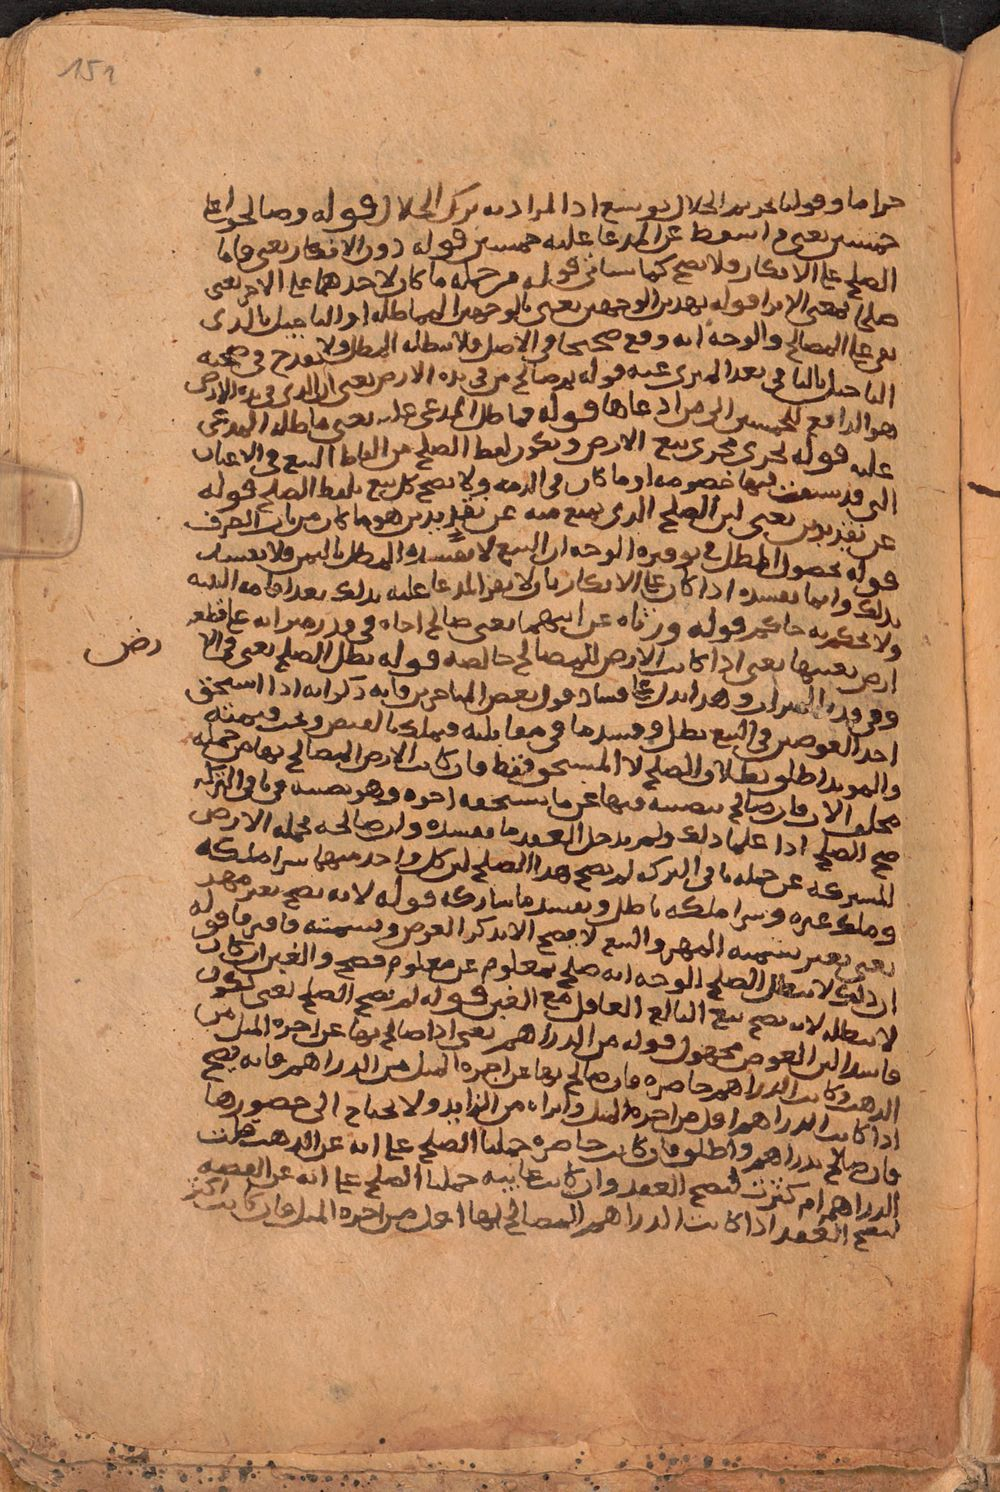 151
حراما وقولنا تحريم الحلال توسع اذ المراد به ترك الحلال قوله وصالحوا على
خمسين يعني اسقط عن المدعا عليه خمسين قوله دون الانكار يعني فاما
الصلح على الانكار فلا يصح كما سياتي قوله من جملة ما كان لاحدهما على الاخر يعني
صلحا بمعنى الابرا قوله بهذين الوجهين يعني بالوجهين المماطلة او التاجيل بالذي
بقي على المصالح والوجه انه وقع صحيحا في الاصل فلا تبطله المطل ولا يقدح في صحته
التاجيل بالباقي بعد المبرى عنه قوله بمصالح من في يده الارض يعني ان الذي في يده الارض
هو الدافع للخمسين الى من ادعاها قوله فماطل المدعى عليه يعني ماطله المدعى
عليه قوله تجري مجرى بيع الارض ويكون لفظ الصلح من الفاظ البيع في الاعيان
التي قد سبقت فيها خصومه او ما كان في الذمه ولا يصح كل بيع بلفظ الصلح قوله
عن نقد بدين يعني لان الصلح الذي يمنع منه عن نقد بدين هو ما كان من باب الصرف
قوله بحصول المطل في توفيره الوجه ان البيع لا يفسده المطل بالثمن فلا يفسد
بذلك وانما يفسده اذا كان على الانكار بان لا يقر المدعا عليه بذلك بعد اقامة البينه
ولا يحكم به حاكم قوله ورثاه عن ابيهما يعني صالح اخاه في قدر ميراثه على قطعه
ارض بعينها يعني اذا كانت الارض المصالح خالصه قوله بطل الصلح يعني في الا
رض
وفي قدر الميراث وهذا يدل على فساد قول بعض المتاخرين فانه ذكر انه اذا استحق
احد العوضين في البيع بطل وفسد ما في مقابلته فيملك بالقبض وتجب قيمته
والمويد اطلق بطلان الصلح لا المستحق فقط فان كانت الارض المصالح بها من جملة
مخلف الاب فان صالح بنصيبه فيها عن ما يستحقه اخوه وهو نصيبه في باقي التركه
صح الصلح اذا علما ذلك ولم يدخل العقد ما يفسده وان صالحه بجملة الارض
المشتركه عن جملة باقي التركه لم يصح هذا الصلح لان كل واحد منهما شرا ملكه
وملك غيره وشرا ملكه باطل ويفسد ما شاركه قوله لانه يصح بغير مهر
يعني بغير تسمية المهر والبيع لا يصح الا بذكر العوض وتسميته فافترقا قوله
ان ذلك لا يبطل الصلح الوجه انه صلح بمعلوم عن معلوم فصح والغبن
لا يبطله لانه يصح بيع البالغ العاقل مع الغبن قوله لم يصح الصلح يعني يكون
فاسدا لان العوض مجهول قوله من الدراهم يعني اذا صالح بها عن اجرة المثل من
الذهب وكانت الدراهم حاضره فان صالح بها عن اجرة المثل من الدراهم فانه يصح
اذا كانت الدراهم اقل من اجرة المثل وابراه من الزايد ولا يحتاج الى حضورها
فان صالح بدراهم واطلق فان كانت حاضره حملنا الصلح على انه عن الذهب قلت
الدراهم ام كثرت ليصح العقد وان كانت غايبه حملنا الصلح على انه عن الفضه
ليصح العقد اذا كانت الدراهم المصالح بها اقل من اجرة المثل فان كانت اكثر